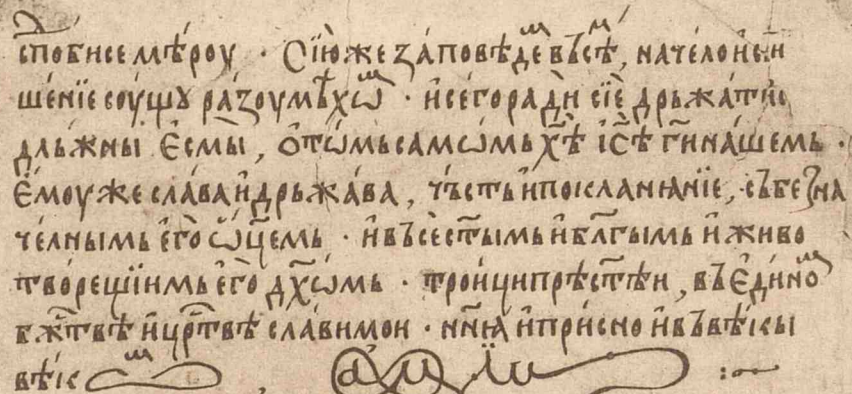 сп҃обисе мѣ́роу · Сїю́же за́повѣдемⷮ въ́сѣⷨ, начело и҆ съи
ше́нїе соу́щꙋ ра́зоумѣ́хѡⷨ · и҆ сего́ ра́ди сїѐ дръжа́ти
длъ́жны ѐсмы̀, ѻ҆ то́мь самѡ́мь хⷭ҇ѣ і҆с҃ѣ г҃и на́шемь ·
е҆моу́же сла́ва и҆ дръжа́ва, чь́сть и҆ покланꙗнїе, съ безна
че́лнымь е҆го̀ ѿц҃емь · и҆ въсе ст҃ымь и҆ бл҃гымь и҆ живо
тво́рещїимь е҆го̀ дх҃ѡмь · тро́ици прѣст҃ѣи, въ е҆ди́ноⷨ
бжⷭ҇твѣ и҆ црⷭ҇твѣ сла́вимои · нн҃ꙗ и҆ при́сно и҆ въ вѣ́кы
вѣ́кѡⷨ, а҆мїнь :~